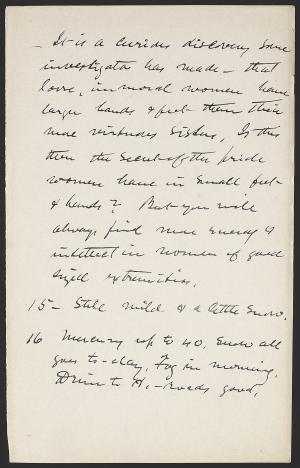 - It is a curious discovery some
investigator has made - that
low, immoral women have
large hands & feet than their
more virtuous sisters, Is this
then the secret of the pride
women have in small feet
& hands? But you will
always find more energy &
intellect in women of good
sized extremities.
15 - Still mild & a little snow.
16 Mercury up to 40, Snow all
goes to-day, Fog in morning,
Drive to H. - roads good,